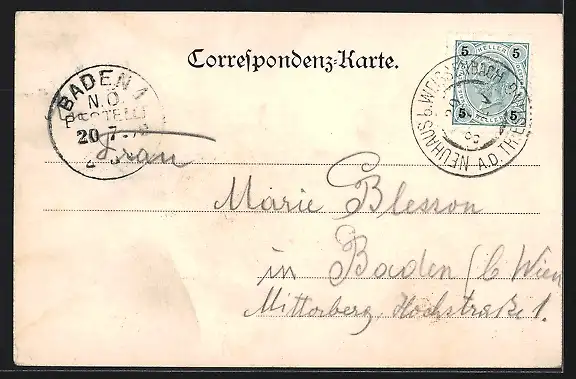 Correspondenz-Karte.
BADEN 1
N.Ö.
BESTELLT
20 7
NEUHAUS b. WEISSENBACH A.D. TRIEST
5 5
HELLER
5 5
Frau
Marie Blesson
in Baden b/ Wien
Mitterberg, Hochstraße 1.